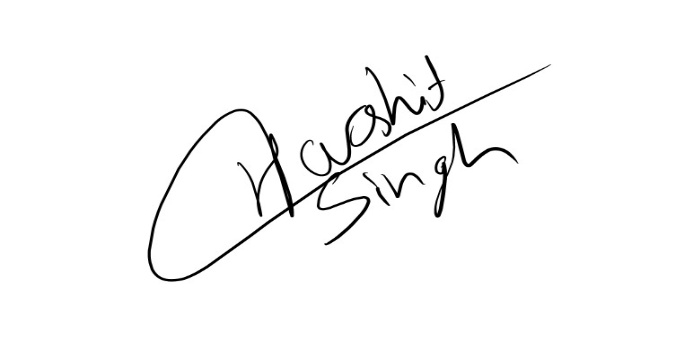 Harshit
Singh